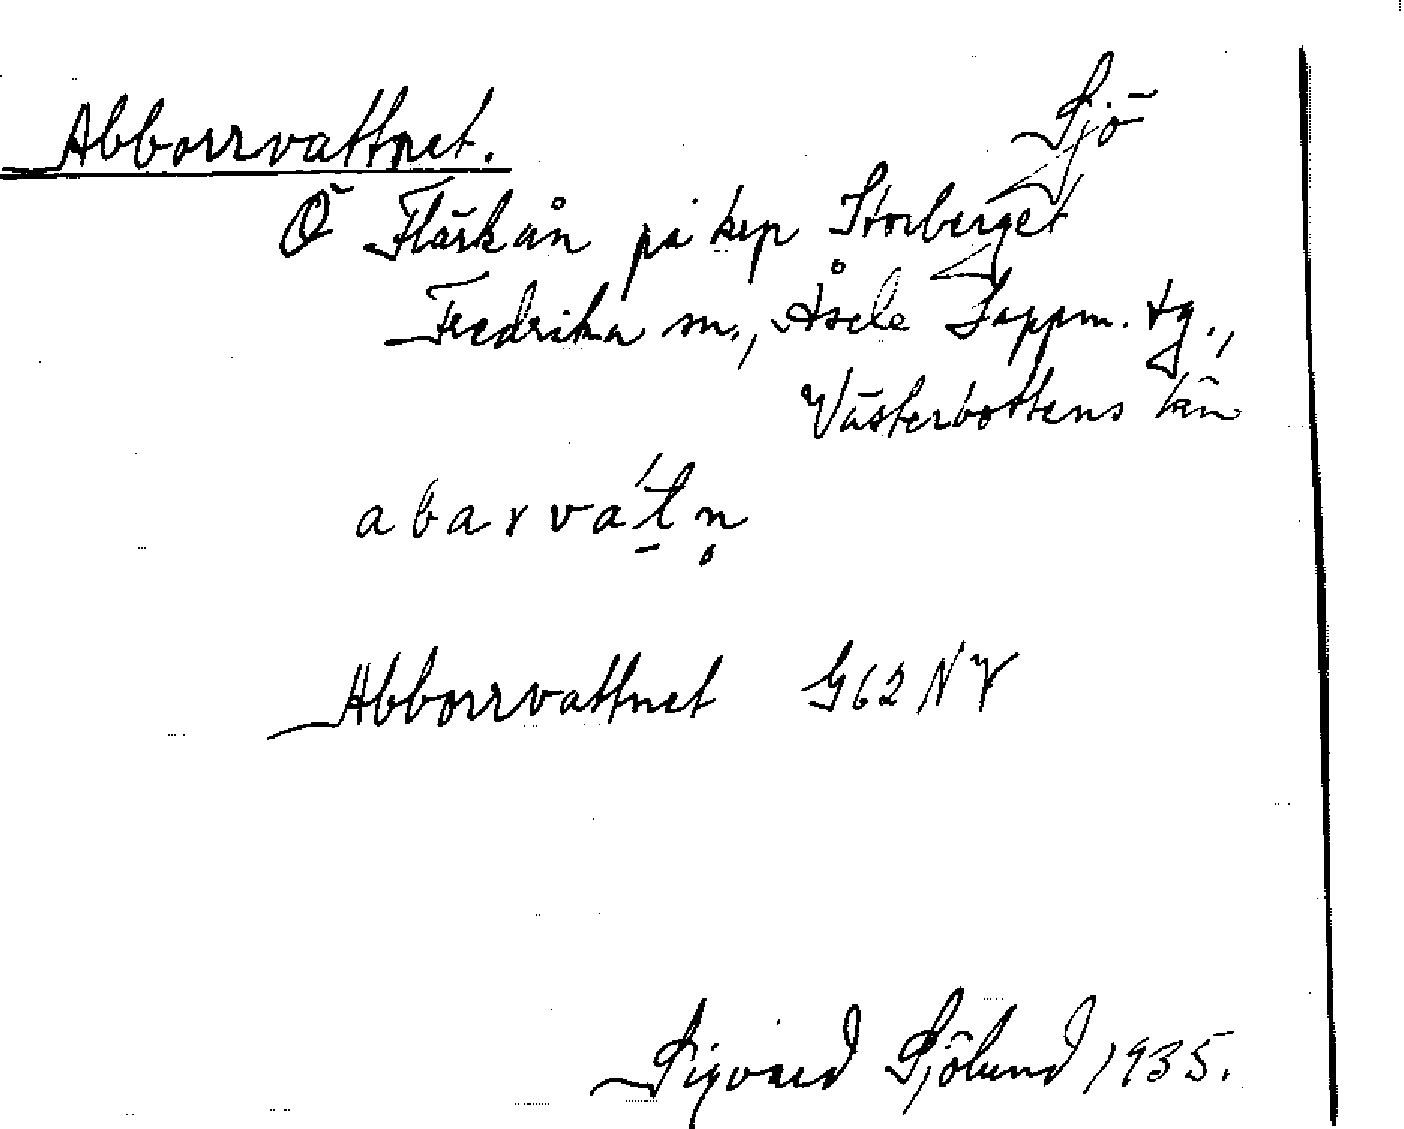 Abborrvattnet.
Sjö
Ö Flärkån på krp Storberget
Fredrika sn., Åsele Lappm. tg.,
Västerbottens län
abarvat́n̥
Abborrvattnet G62 NV
Sigvard Sjölund 1935.